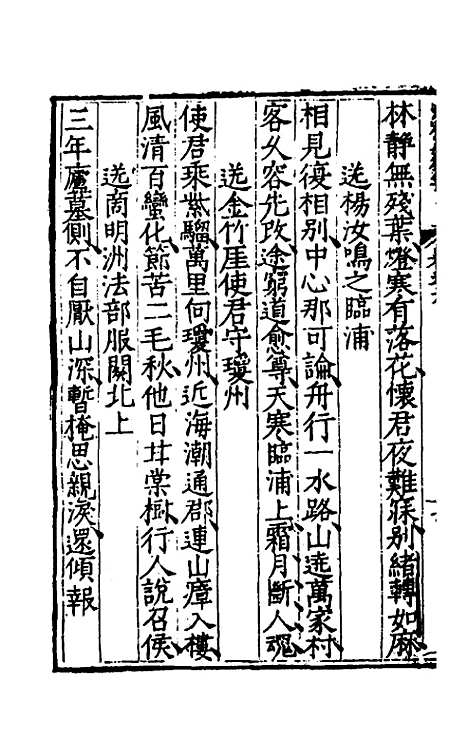 林靜無殘葉燈寒有落花懷君夜難寐別緒轉如麻
送楊汝鳴之臨浦
相見復相別中心那可論舟行一水路山遶萬家村
客久容先改途窮道愈尊天寒臨浦上霜月斷人魂
送金竹厓使君守瓊州
使君乘紫騮萬里向瓊州近海潮通郡連山瘴入樓
風清百蠻化節苦二毛秋他日甘棠樹行人說召侯
送商明洲法部服闋北上
三年廬墓側不自厭山深暫掩思親淚還傾報